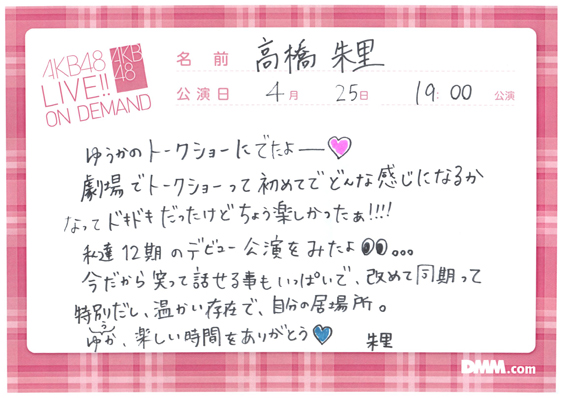 AKB48
LIVE!!
ON DEMAND
AKB
48
名前 高橋 朱里
公演日 4月 25日 19:00 公演
ゆうかのトークショーにでたよー
劇場でトークショーって初めてでどんな感じになるか
なってドキドキだったけどちょう楽しかったぁ!!!!
私達12期のデビュー公演をみたよ...
今だから笑って話せる事もいっぱいで、改めて同期って
特別だし、温かい存在で、自分の居場所。
ゆうか、楽しい時間をありがとう
朱里
DMM.com